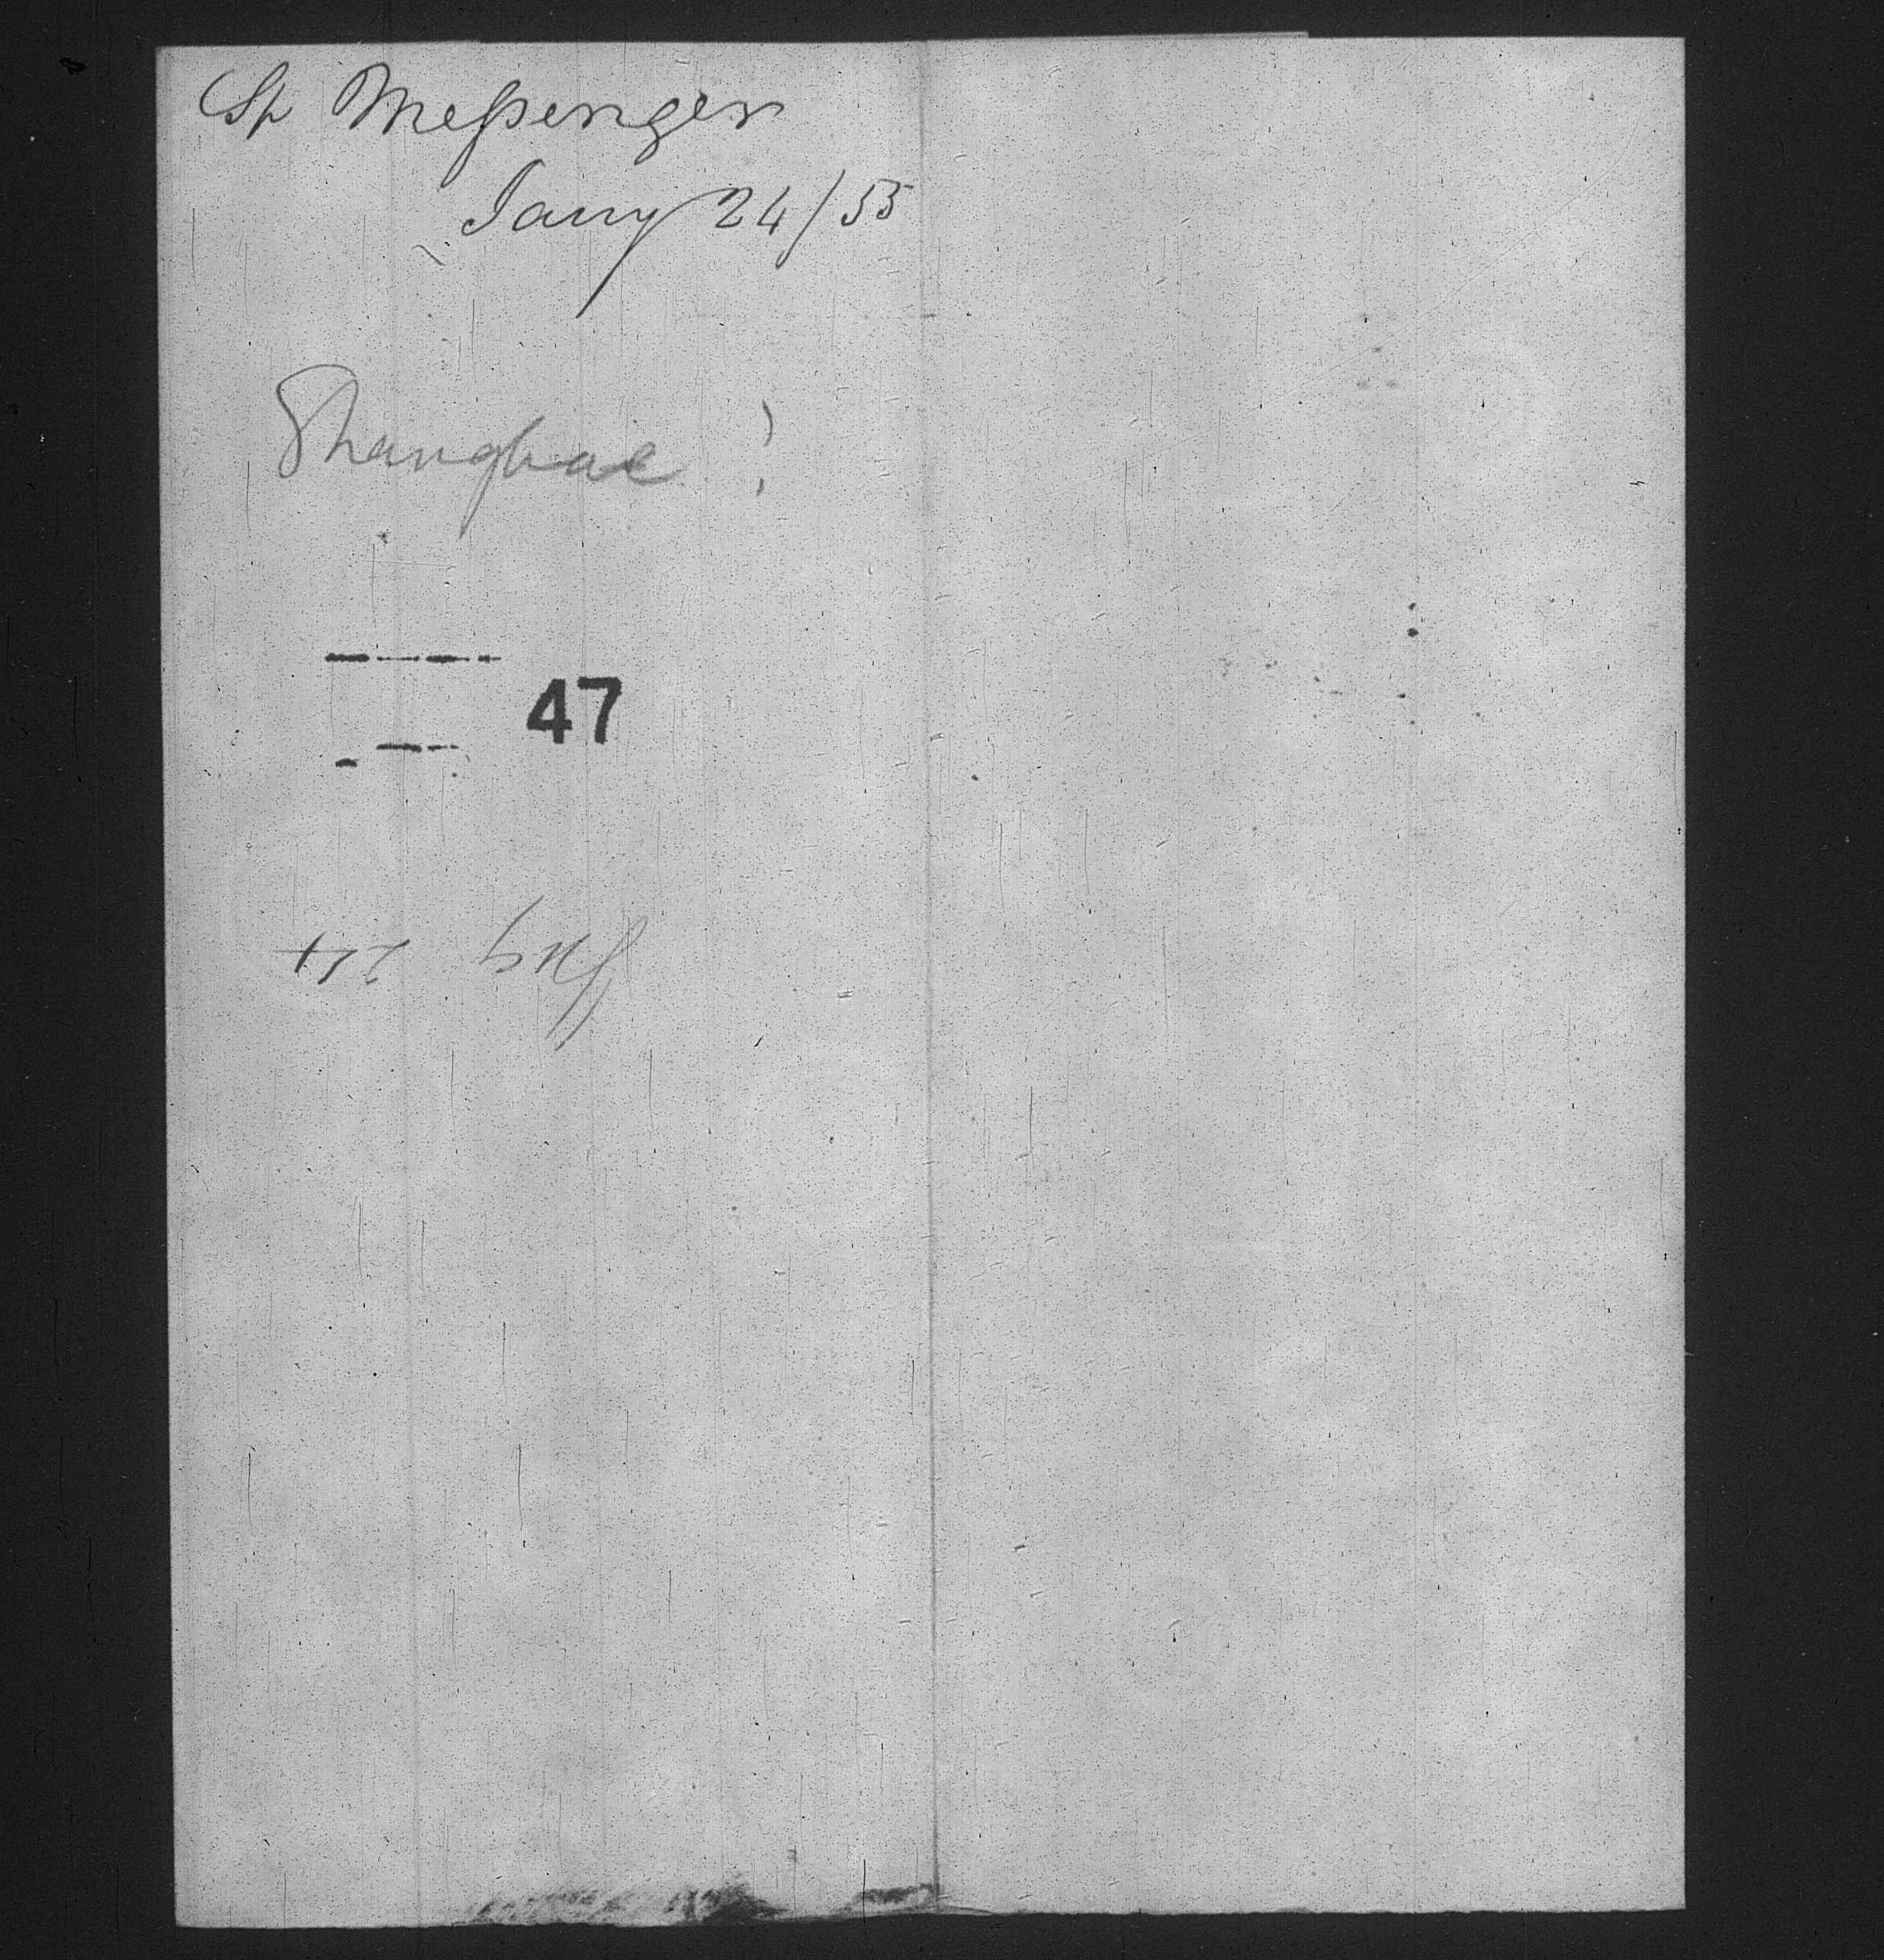 Sp Messenger
Jany 24/55
Shanghae !
47